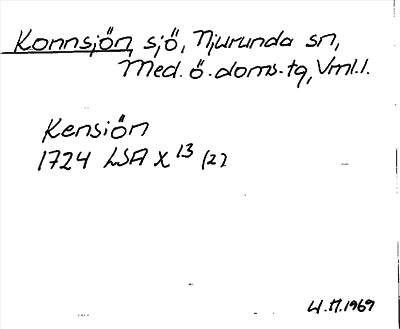 Konnsjön, sjö, Njurunda sn,
Med. ö. doms.tg, Vml.l.
Kensiön
1724 LSA X 13 (2)
W.H.1969